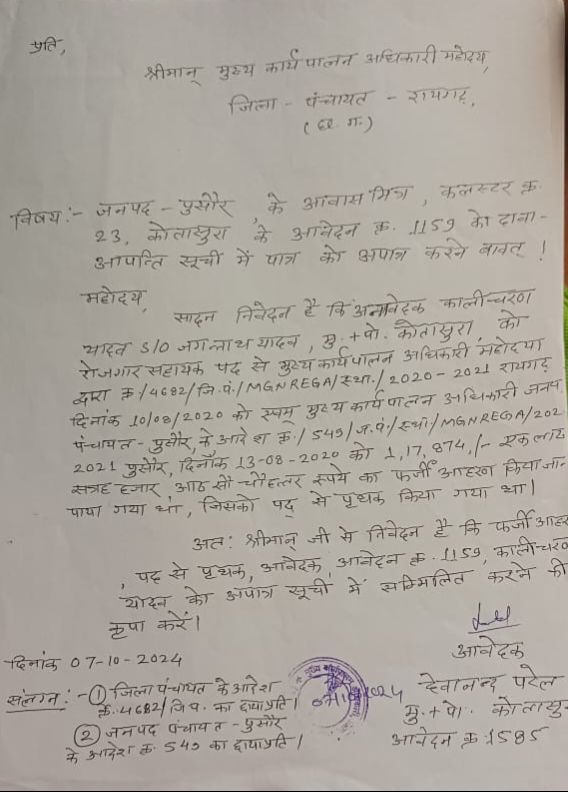 प्रति,
श्रीमान् मुख्य कार्यपालन अधिकारी महोदय,
जिला - पंचायत - रायगढ़,
(छ. ग.)
विषय :- जनपद - पुसौर, के आवास मित्र, कलस्टर क्र.
23, कोतासुरा के आवेदन क्र. 1159 को दावा-
आपत्ति सूची में पात्र को अपात्र करने बावत् !
महोदय,
सादन निवेदन है कि अनावेदक कालीचरण
यादव S/O जगन्नाथ यादव, मु. + पो. कोतासुरा को
रोजगार सहायक पद से मुख्य कार्यपालन अधिकारी महोदया
द्वारा क्र/4682/जि.पं./MGNREGA/स्था./2020-2021 रायगढ़
दिनांक 10/08/2020 को स्वम् मुख्य कार्यपालन अधिकारी जनप.
पंचायत - पुसौर, के आदेश क्र/549/ज.पं/स्था/MGNREGA/202
2021 पुसौर, दिनाँक 13-08-2020 को 1,17,874,/- एक लाख
सत्रह हजार, आठ सौ चौहत्तर रुपये का फर्जी आहरण किया जा-
पाया गया था, जिसको पद् से पृथक किया गया था।
अतः श्रीमान् जी से निवेदन है कि फर्जी आहर
, पद से पृथक, आवेदक, आवेदन क्र. 1159, कालीचरण
यादव को अपात्र सूची में सम्मिलित करने की
कृपा करें।
दिनांक 07-10-2024
आवेदक
संलग्न :- ① जिला पंचायत के आदेश
क्र. 4682/जि.प. का छायाप्रति।
07/10/2024
देवानन्द पटेल
मु. + पो. कोतासु
② जनपद पंचायत - पुसौर
के आदेश क्र. 549 का छायाप्रति।
आवेदन क्र. 1585